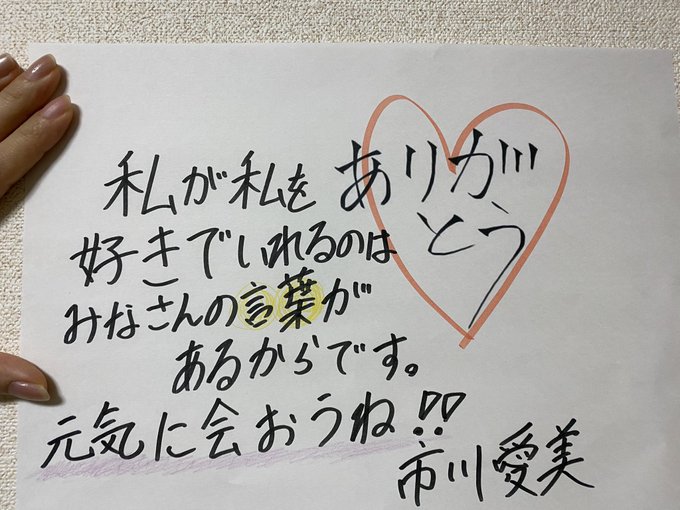 ありがとう
私が私を
好きでいれるのは
みなさんの言葉が
あるからです。
元気に会おうね!!
市川愛美